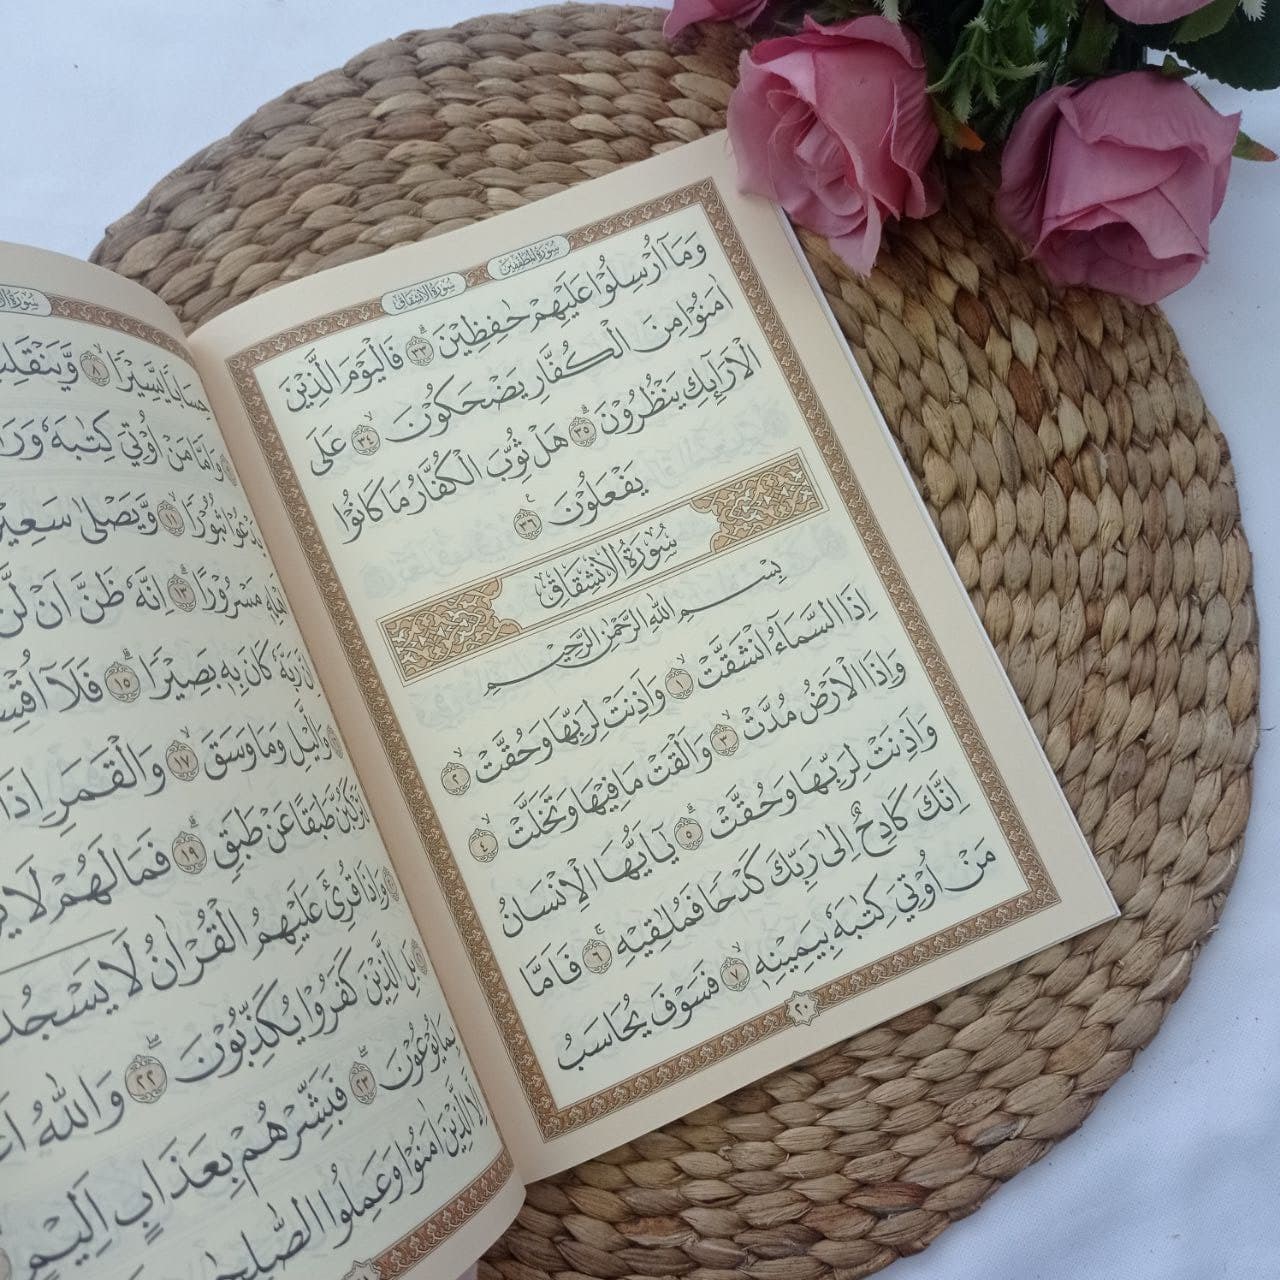 سورة المطففين
سورة الانشقاق
وَمَآ اُرْسِلُوْا عَلَيْهِمْ حٰفِظِيْنَ ۗ ٣٣ فَالْيَوْمَ الَّذِيْنَ
اٰمَنُوْا مِنَ الْكُفَّارِ يَضْحَكُوْنَ ۙ ٣٤ عَلَى
الْاَرَاۤىِٕكِ يَنْظُرُوْنَ ۗ ٣٥ هَلْ ثُوِّبَ الْكُفَّارُ مَا كَانُوْا
يَفْعَلُوْنَ ࣖ ٣٦
سُوْرَةُ الْاِنْشِقَاقِ
بِسْمِ اللّٰهِ الرَّحْمٰنِ الرَّحِيْمِ
اِذَا السَّمَاۤءُ انْشَقَّتْ ۙ ١ وَاَذِنَتْ لِرَبِّهَا وَحُقَّتْ ۙ ٢
وَاِذَا الْاَرْضُ مُدَّتْ ۙ ٣ وَاَلْقَتْ مَا فِيْهَا وَتَخَلَّتْ ۙ ٤
وَاَذِنَتْ لِرَبِّهَا وَحُقَّتْ ۗ ٥ يٰٓاَيُّهَا الْاِنْسَانُ
اِنَّكَ كَادِحٌ اِلٰى رَبِّكَ كَدْحًا فَمُلٰقِيْهِ ۚ ٦ فَاَمَّا
مَنْ اُوْتِيَ كِتٰبَهٗ بِيَمِيْنِهٖ ۙ ٧ فَسَوْفَ يُحَاسَبُ
٢٠
حِسَابًا يَّسِيْرًا ۙ ٨ وَّيَنْقَلِبُ
وَاَمَّا مَنْ اُوْتِيَ كِتٰبَهٗ
يَدْعُوْا ثُبُوْرًا ۙ ١١ وَّيَصْلٰى سَعِيْرًا
اَهْلِهٖ مَسْرُوْرًا ۗ ١٣ اِنَّهٗ ظَنَّ اَنْ لَّنْ
اِنَّ رَبَّهٗ كَانَ بِهٖ بَصِيْرًا ۗ ١٥ فَلَآ
وَالَّيْلِ وَمَا وَسَقَ ۙ ١٧ وَالْقَمَرِ اِذَا
لَتَرْكَبُنَّ طَبَقًا عَنْ طَبَقٍ ۗ ١٩ فَمَا لَهُمْ لَا
وَاِذَا قُرِئَ عَلَيْهِمُ الْقُرْاٰنُ لَا يَسْجُدُوْنَ
بَلِ الَّذِيْنَ كَفَرُوْا يُكَذِّبُوْنَ ۖ ٢٢ وَاللّٰهُ
بِمَا يُوْعُوْنَ ۖ ٢٣ فَبَشِّرْهُمْ بِعَذَابٍ اَلِيْمٍ
اِلَّا الَّذِيْنَ اٰمَنُوْا وَعَمِلُوا الصّٰلِحٰتِ